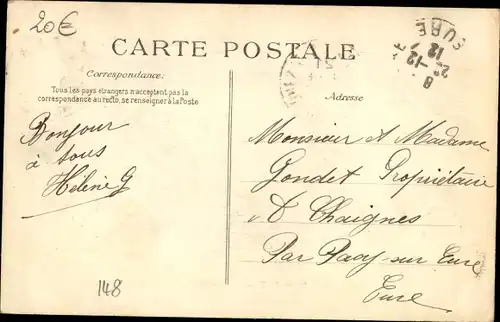 20€
CARTE POSTALE
Correspondance:
Tous les pays étrangers n'acceptent pas la
correspondance au recto, se renseigner à la Poste
Adresse
Bonjour
à tous
Hélène G
148
Monsieur et Madame
Gondet Propriétaire
à Chaignes
Par Pacy-sur Eure
Eure
EURE